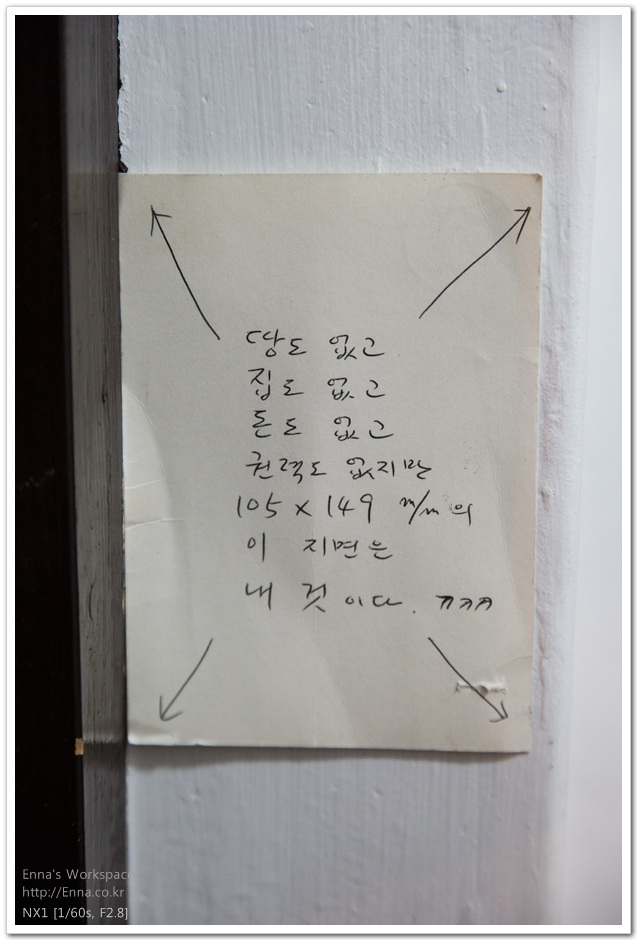 땅도 없고
집도 없고
돈도 없고
권력도 없지만
105 x 149 m/m 의
이 지면은
내 것 이다. ㅋㅋㅋ
Enna's Workspace
http://Enna.co.kr
NX1 [1/60s, F2.8]